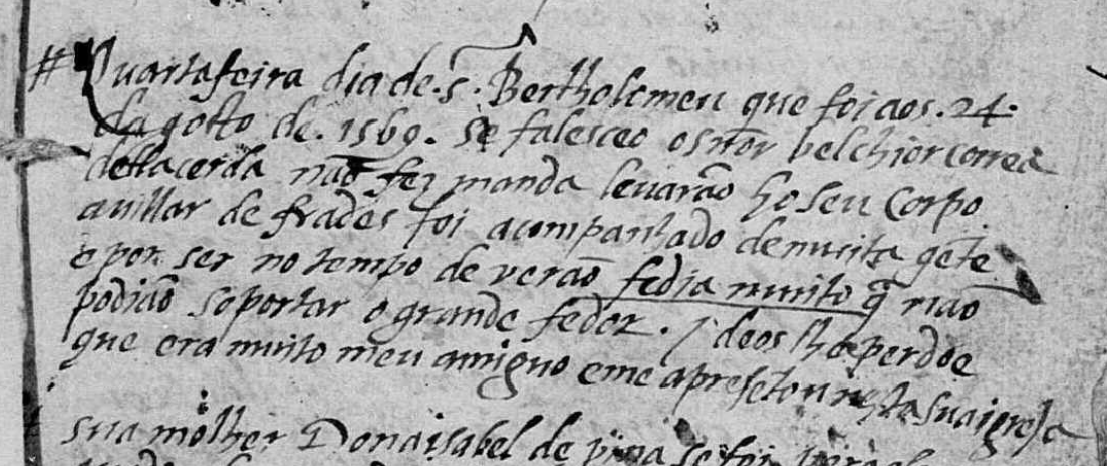 # Quarta feira dia de. S. Bertholomeu que foi aos. 24.
dagosto de. 1569. se falesceo o sñor belchior correa
dellacerda não fez manda levarão ho seu corpo
a villar de frades foi acompanhado de muita gẽte
e por ser no tempo de verão fedia muito q̃ não
podião soportar o grande fedor. / deos lhe perdoe
que era muito meu amiguo e me apresẽtou nesta sua igreja
sua molher Dona isabel de pina se foi